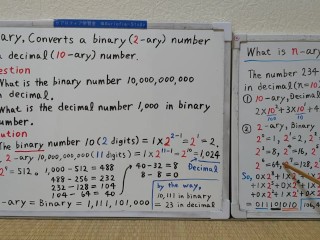 ary, Converts a binary (2-ary) number
a decimal (10-ary) number.
estion
What is the binary number 10,000,000,000
decimal.
What is the decimal number 1,000 in binary
number.
The binary number 10 (2 digits) = 1×2²⁻¹ = 2¹ = 2.
2-ary 10,000,000,000 (11 digits) = 1×2¹¹⁻¹ = 2¹⁰ = 1,024
2⁹ = 512. 1,000 - 512 = 488
488 - 256 = 232
232 - 128 = 104
104 - 64 = 40
40 - 32 = 8
8 - 8 = 0
by the way,
10,111 in binary
= 23 in decimal
-ary = Binary = 1,111,101,000
What is n-ary
The number 234
in decimal (n=10
① 10-ary, Decimal
2×10²+3×10¹+4
100 10
② 2-ary, Binary
2⁰=1, 2¹=2, 2²
2³=8, 2⁴=16, 2⁵
2⁶=64,
So, 0×2⁸+1×2⁷
+1×2
+0×2
= 011101010